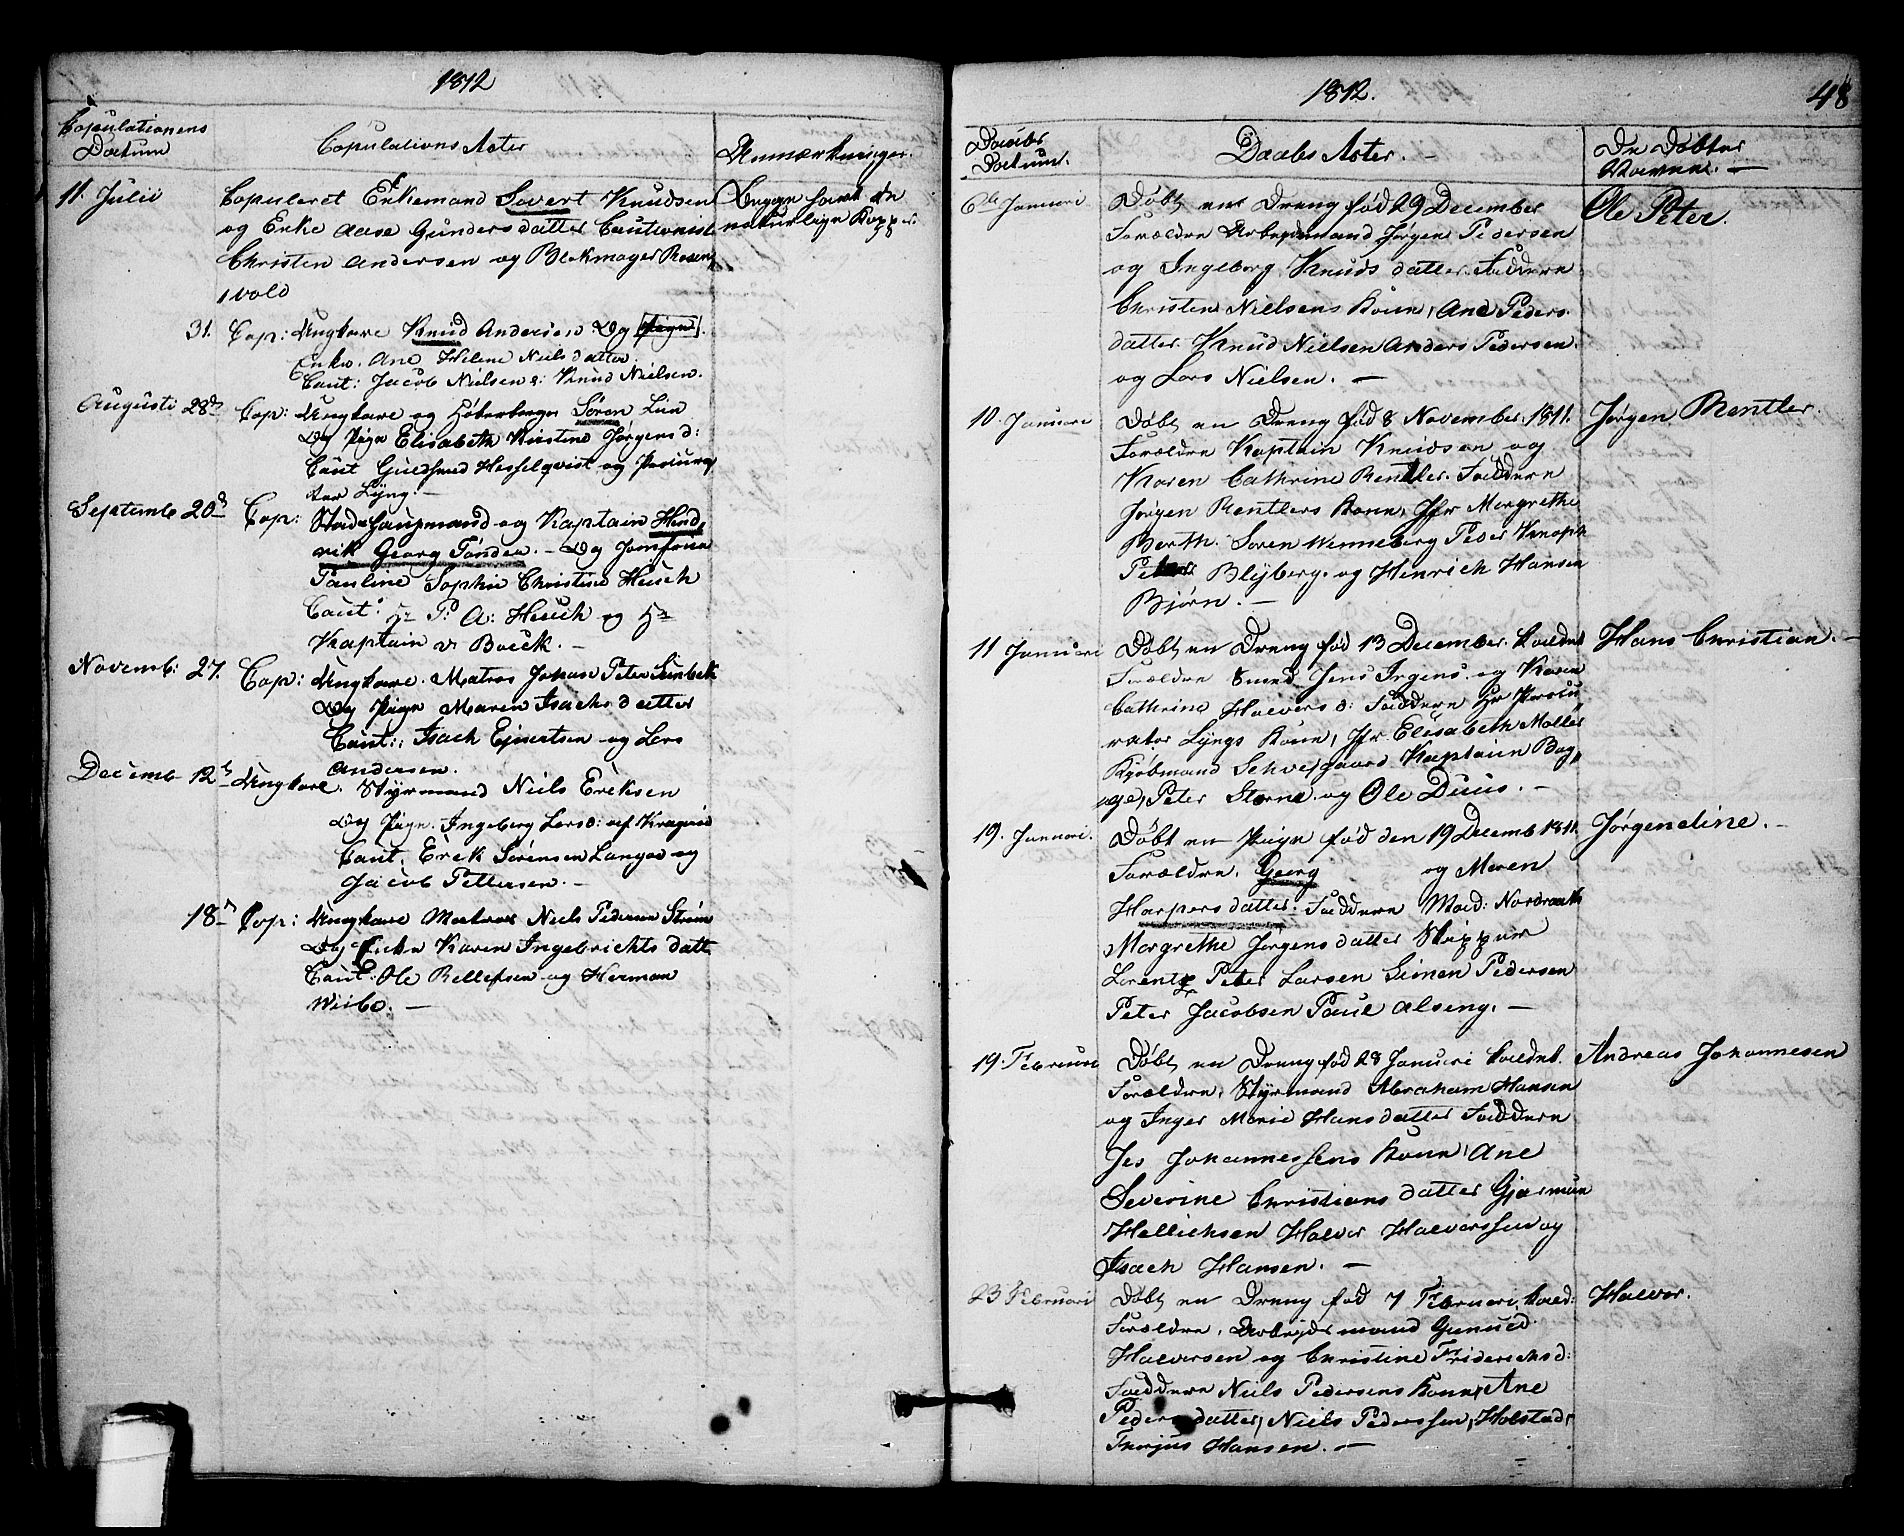 1812
Copulationens
Datum
Copulations Acter
Anmærkninger.
11. Julii
Copuleret Enkemand Sovert Knudsen
og Enke Aase Gundersdatter Cautionist
Christen Andersen og Blokmager Rosen
vold
Begge havt de
naturlige Kopper
31. Cop: Ungkarl Knud Andersen Og Pige
Enke. Ane Helene Nielsdatter.
Caut: Jacob Nielsen &: Knud Nielsen.
Augusti 28de Cop: Ungkarl og Søren Lun
Og Pige Elisabeth Kirstine Jørgensd:
Caut Guldsmed Hesselqvist og Procura
tor Lyng. —
Septemb 20d Cop: Stads Haupmand og Kaptain Hend
rik Georg Tønder. — Og Jomfrue
Pauline Sophie Christine Heuch
Caut: Hr P: A: Heuch og Hr
Kaptain v Boeck. —
Novemb: 27. Cop: Ungkarl. Matros Johan Peter
Og Pige Maren Isachsdatter
Caut: Isach Ejvertsen og Lars
Andersen.
Decemb 12te Ungkarl. Styrmand Niels Ericksen
Og Pige. Ingeberg Larsd: af Kragerøe
Caut. Erick Sørensen Langøe og
Jacob Pettersen. —
18de Cop: Ungkarl Matros Niels Pedersen Strøm
Og Enke Karen Ingebrichtsdatt
Caut: Ole Rellefsen og Herman
Wiibo. —
1812.
48
Daabs
Datum.
Daabs Acter. —
De Døbtes
Navne. —
6te Januari
Døbt en Dreng fød 29 December
Forældre Arbeydsmand Jørgen Pedersen
og Ingeborg Knudsdatter. Faddere
Christen Nielsens Kone, Ane Peders
datter Knud Nielsen Anders Pedersen
og Lars Nielsen. —
Ole Peter
10. Januari
Døbt en Dreng fød 8 November 1811.
Forældre Kaptain Knudsen og
Karen Cathrine Rentler. Faddere
Jørgen Rentlers Kone, Jfr Margrethe
Barth. Søren Wenneberg Peder Knoph
Peter Blyberg. og Henrich Hansen
Bjørn. —
Jørgen Rentler.
11 Januari
Døbt en Dreng fød 13 December.
Forældre Smed Jens Irgens og Karen
Cathrine Halvorsd: Faddere Hr Procu
rator Lyngs Kone, Jfr Elisabeth Møller
Kjøbmand Schvesgaard Kaptain Bag
ge, Peter Storm. og Ole Duus. —
Hans Christian. —
19. Januari.
Døbt en Pige fød den 19 Decemb 1811.
Forældre, Georg og Maren
Harpersdatter. Faddere Mad: Nordraak
Margrethe Jørgensdatter Skipper
Lorentz Peter Larsen Simen Pedersen
Peter Jacobsen Paul Alseng. —
Jørgendine. —
19. Februari
Døbt en Dreng fød 28 Januari
Forældre, Styrmand Abraham Hansen
og Inger Marie Hansdatter Faddere
Jes Johannessens Kone, Ane
Severine Christiansdatter Gjermun
Hellichsen Halvor Halvorssen og
Isach Hansen. —
Andreas Johannesen
23 Februari
Døbt en Dreng fød 7 Februari.
Forældre, Arbeydsmand Gunuld
Halvorsen og Christine Friderichsd:
Faddere Niels Pedersens Kone, Ane
Pedersdatter, Niels Pederssen, Holstad,
Therjus Hansen. —
Halvor.